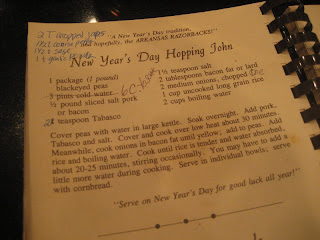 2 T chopped
sage
1 t garlic
"A New Year's Day tradition,
hopefully, the ARKANSAS RAZORBACKS!"
New Year's Day Hopping John
1 package (1 pound)
blackeyed peas
3 pints cold water
½ pound sliced salt pork
or bacon
2 teaspoon Tabasco
6 C
1½ teaspoon salt
2 tablespoons bacon fat or lard
2 medium onions, chopped One
1 cup uncooked long grain rice
2 cups boiling water
Cover peas with water in large kettle. Soak overnight. Add pork,
Tabasco and salt. Cover and cook over low heat about 30 minutes.
Meanwhile, cook onions in bacon fat until yellow; add to peas. Add
rice and boiling water. Cook until rice is tender and water absorbed,
about 20-25 minutes, stirring occasionally. You may have to add a
little more water during cooking. Serve in individual bowls; serve
with cornbread.
"Serve on New Year's Day for good luck all year!"